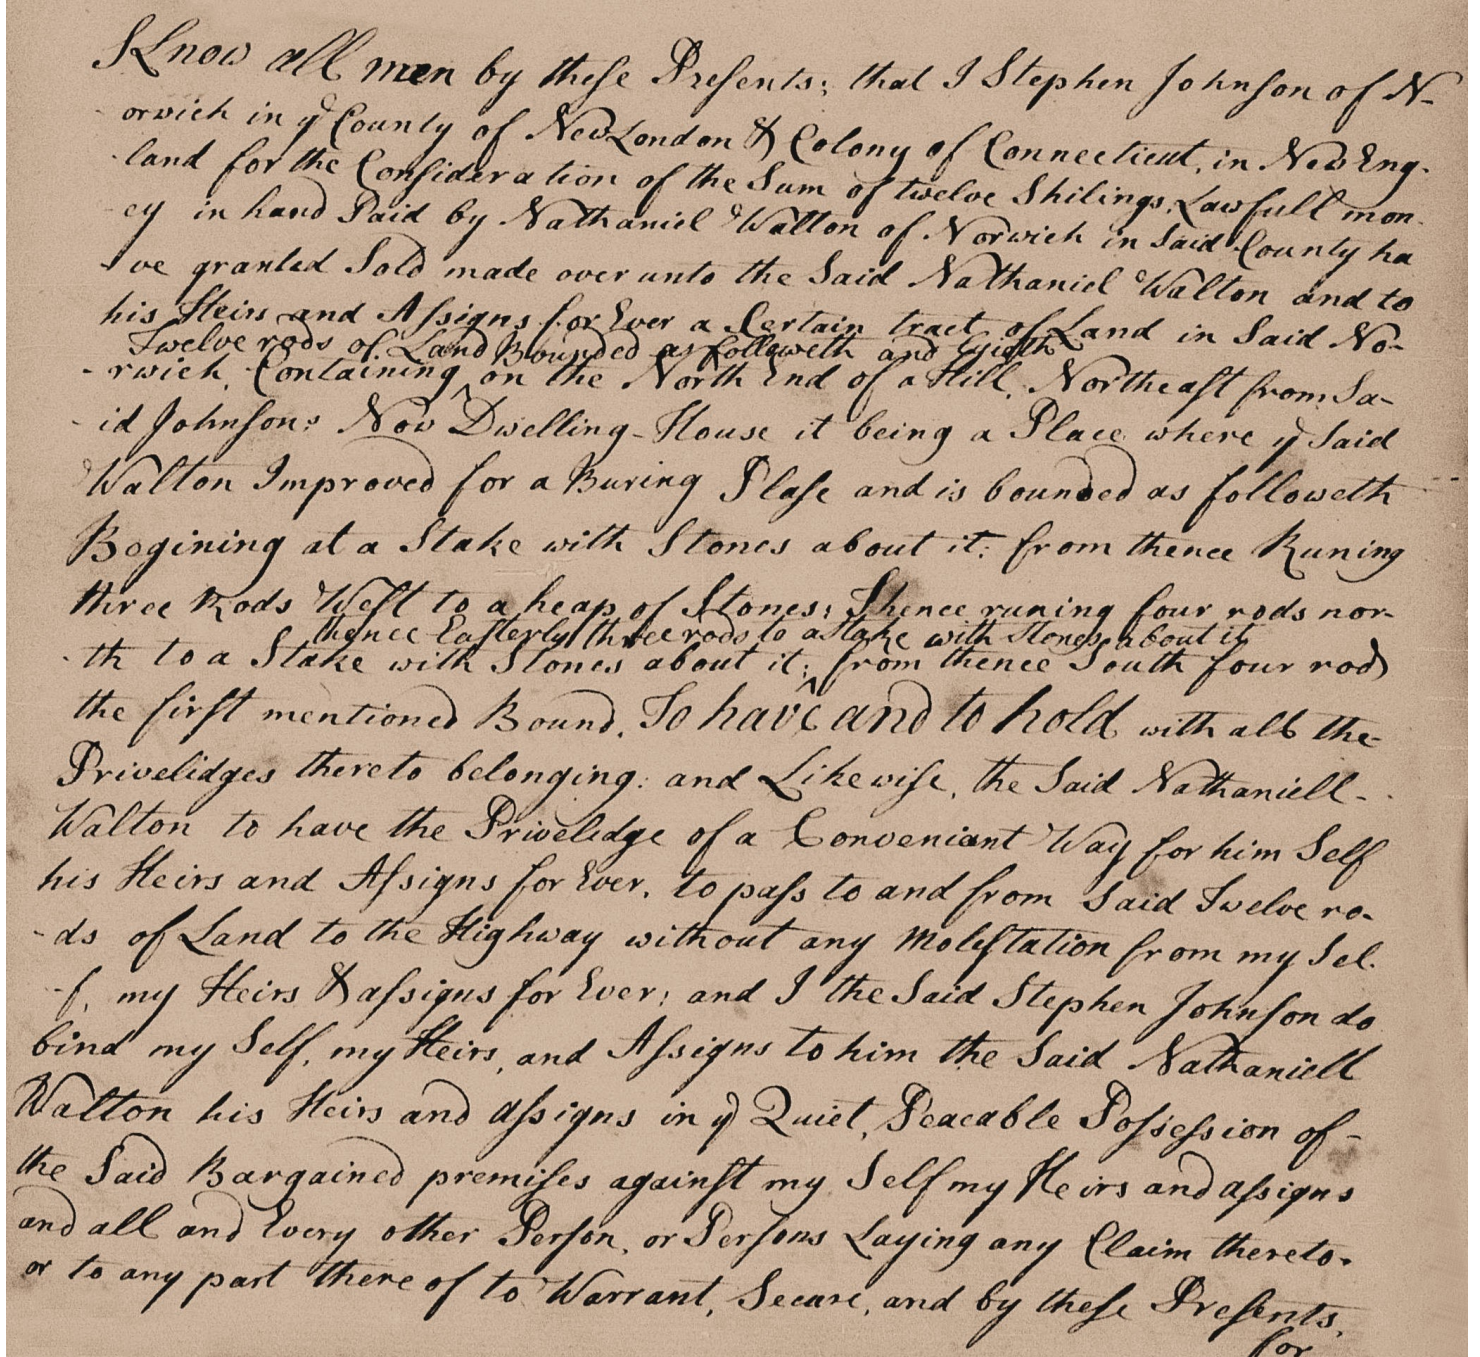 Know all men by these Presents; that I Stephen Johnson of N-
orwich in ye County of New London & Colony of Connecticut, in New Eng-
land for the Consideration of the Sum of twelve Shilings Lawfull mon-
ey in hand Paid by Nathaniel Walton of Norwich in Said County ha
-ve granted Sold made over unto the Said Nathaniel Walton and to
his Heirs and Assigns for Ever a Certain tract of Land in Said No-
Twelve rods of Land Bounded as followeth and
-rwich, Containing ^ on the North End of a Hill, Northeast from Sa-
-id Johnsons Now Dwelling-House it being a Place where ye Said
Walton Improved for a Buring Plase and is bounded as followeth
Begining at a Stake with Stones about it: from thence Runing
three Rods West to a heap of Stones; Thence runing four rods nor-
thence Easterly three rods to a Stake with Stones about it
-th to a Stake with Stones about it; ^ from thence South four rods
the first mentioned Bound. To have and to hold with all the
Privelidges thereto belonging: and Likewise, the Said Nathaniell-
Walton to have the Privelidge of a Conveniant Way for him Self
his Heirs and Assigns for Ever, to pass to and from Said Twelve ro-
-ds of Land to the Highway without any Molestation from my Sel-
-f, my Heirs & assigns for Ever; and I the Said Stephen Johnson do
bind my Self, my Heirs, and Assigns to him the Said Nathaniell
Walton his Heirs and assigns in ye Quiet, Peacable Possession of-
the Said Bargained premises against my Self my Heirs and assigns
and all and Every other Person, or Persons Laying any Claim thereto.
or to any part there of to Warrant, Secure, and by these Presents,
for